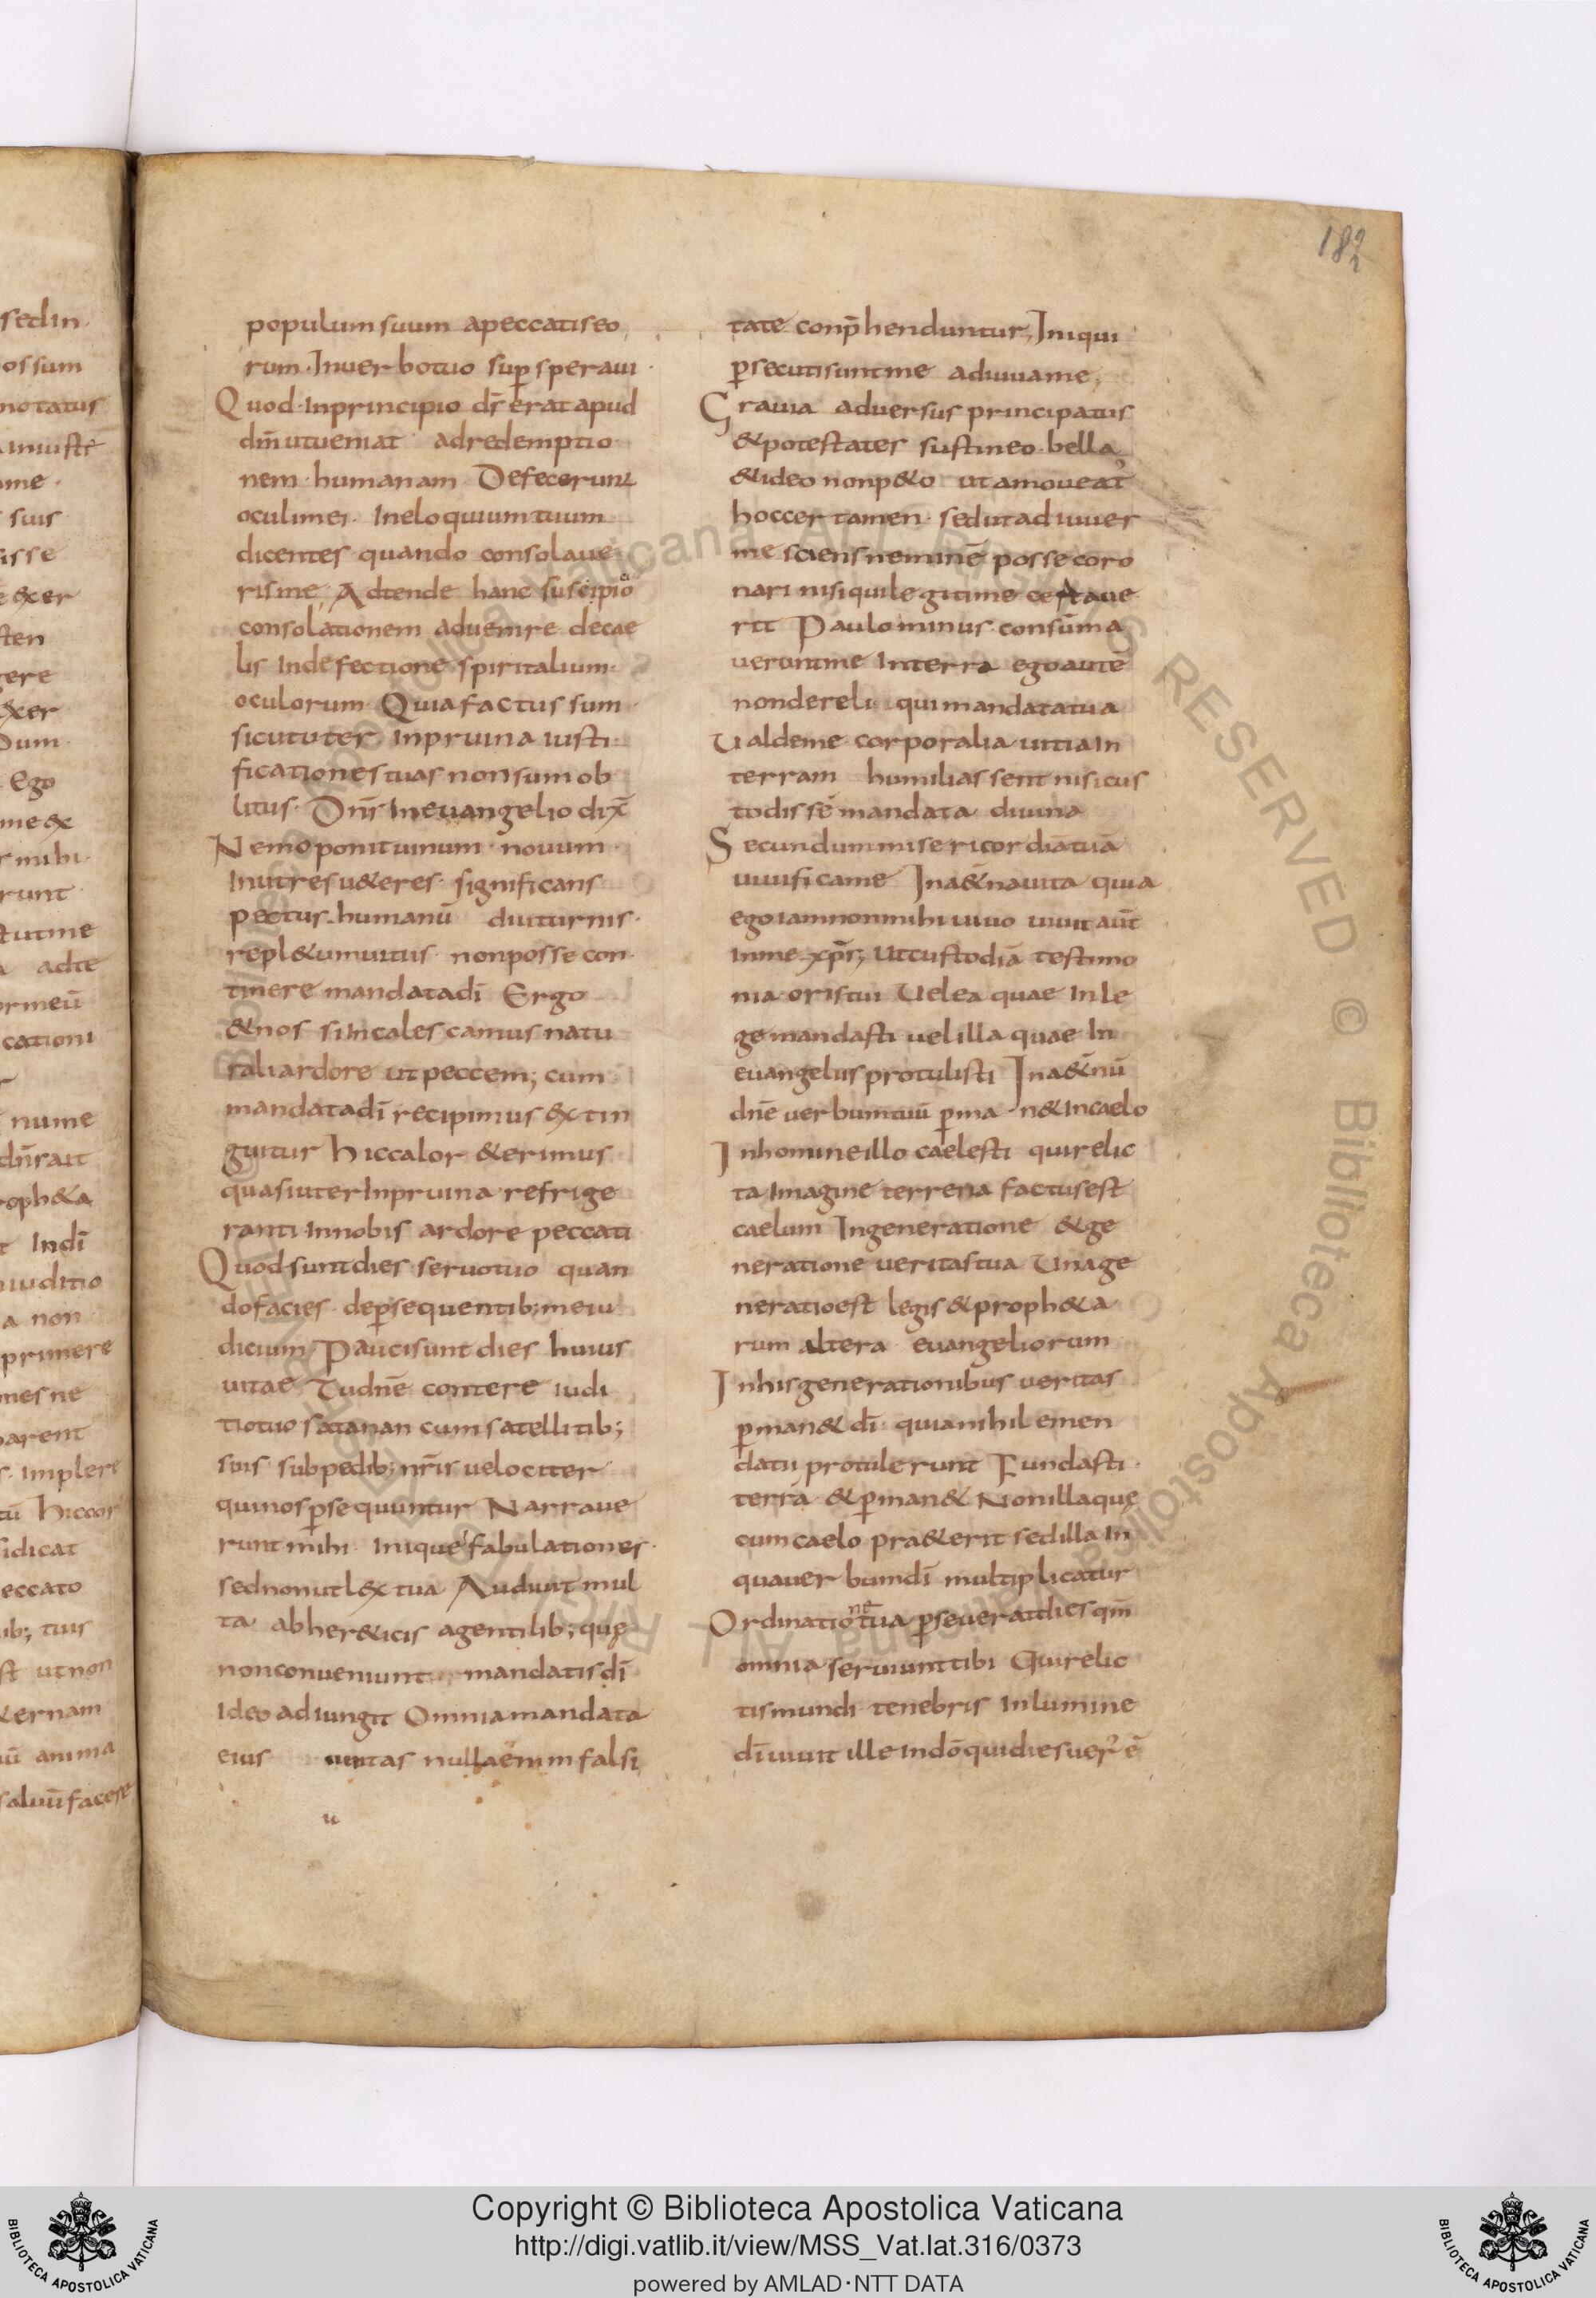 182
populum suum apeccatiseo
rum. Inuerbotuo sup̱ speraui
Quod. Inprincipio dr̄ erat apud
dm̄ utueniat adredemptio
nem humanam Defecerunt
oculimei. Ineloquiumtuum
dicentes quando consolaue
risme, Adtende hanc suscipio
consolationem aduenire decae
lis Indefectione spiritalium
oculorum Quiafactus sum
sicututer Inpruina iusti
ficationestuas nonsumob
litus. Dn̄s Ineuangelio dix̄
Nemo ponituinum nouum
Inutres u&eres significans
pectus humanū diuturnis
repl&umuitiis nonposse con
tinere mandatadī Ergo
&nos siIncalescamus natu
raliardore utpeccem; cum
mandatadī recipimus extin
guitur hiccalor &erimus
quasiuterInpruina refrige
ranti Innobis ardore peccati
Quodsuntdies seruotuo quan
dofacies dep̱sequentib; meiu
dicium Paucisunt dies huius
uitae Tudnē contere iudi
tiotuo satanan cum satellitib;
suis subpedib; nr̄is uelociter
quinosp̱sequuntur Narraue
runt mihi. Inique fabulationes.
sednonutlex tua Audiuit mul
ta abher&icis agentilib; quę
nonconueniunt mandatisdī
Ideo adiungit Omniamandata
eius ueritas nullaenim falsi
u
tate conp̄henduntur, Iniqui
p̱secutisuntme adiuuame,
Grauia aduersus principatus
&potestates sustineo bella
&ideo nonp&o ut amoueat̉
hoccertamen. sedutadiuuer
me sciensneminē posse coro
nari nisiquilegitime certaue
rit Paulominus consūma
ueruntme Interra egoautē
nondereliqui mandatatua
Ualdeme corporalia uitiaIn
terram humiliassent nisicus
todissē mandata diuina
Secundummisericordiātuā
uiuificame Ina&nauita quia
egoiamnonmihiuiuo uiuit aūt
Inme xp̄s; Utcustodiā testimo
nia oristui Uelea quae Inle
gemandasti uelilla quae In
euangeliisprotulisti Ina&nū
dnē uerbumtuū p̱ma n&Incaelo
Inhomineillo caelesti quirelic
ta Imagine terrena factusest
caelum Ingeneratione &ge
neratione ueritastua Unage
neratioest legis &proph&a
rum altera euangeliorum
Inhisgenerationibus ueritas
p̱man& dī quianihil emen
datii protulerunt Fundasti
terrā &p̱man& Nonillaquę
cumcaelo pra&erit sedilla In
quauerbumdī multiplicatur
Ordinationetua p̱seueratdies qm̄
omnia seruiunttibi Quirelic
tismundi tenebris Inlumine
dīuiuit ille Indōquidiesuer̉ ē
Copyright © Biblioteca Apostolica Vaticana
http://digi.vatlib.it/view/MSS_Vat.lat.316/0373
powered by AMLAD·NTT DATA